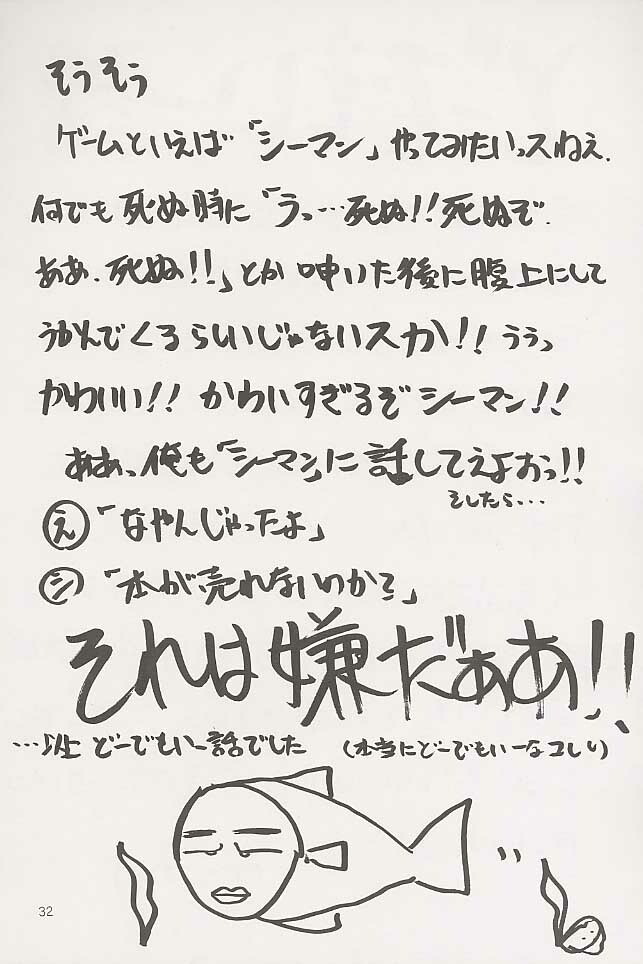 そうそう
ゲームといえば「シーマン」やってみたいっスねえ.
何でも死ぬ時に「うっ…死ぬ!!死ぬぞ.
ああ.死ぬ!!」とか呻いた後に腹上にして
うかんでくるらしいじゃないスか!! ううっ
かわいい!! かわいすぎるぞシーマン!!
ああっ、俺も「シーマン」に話してえよおっ!!
そしたら…
え「なやんじゃったよ」
シ「本が売れないのか?」
それは嫌だぁあ!!
…以上 どーでもいー話でした (本当にどーでもいーなコレ)
32